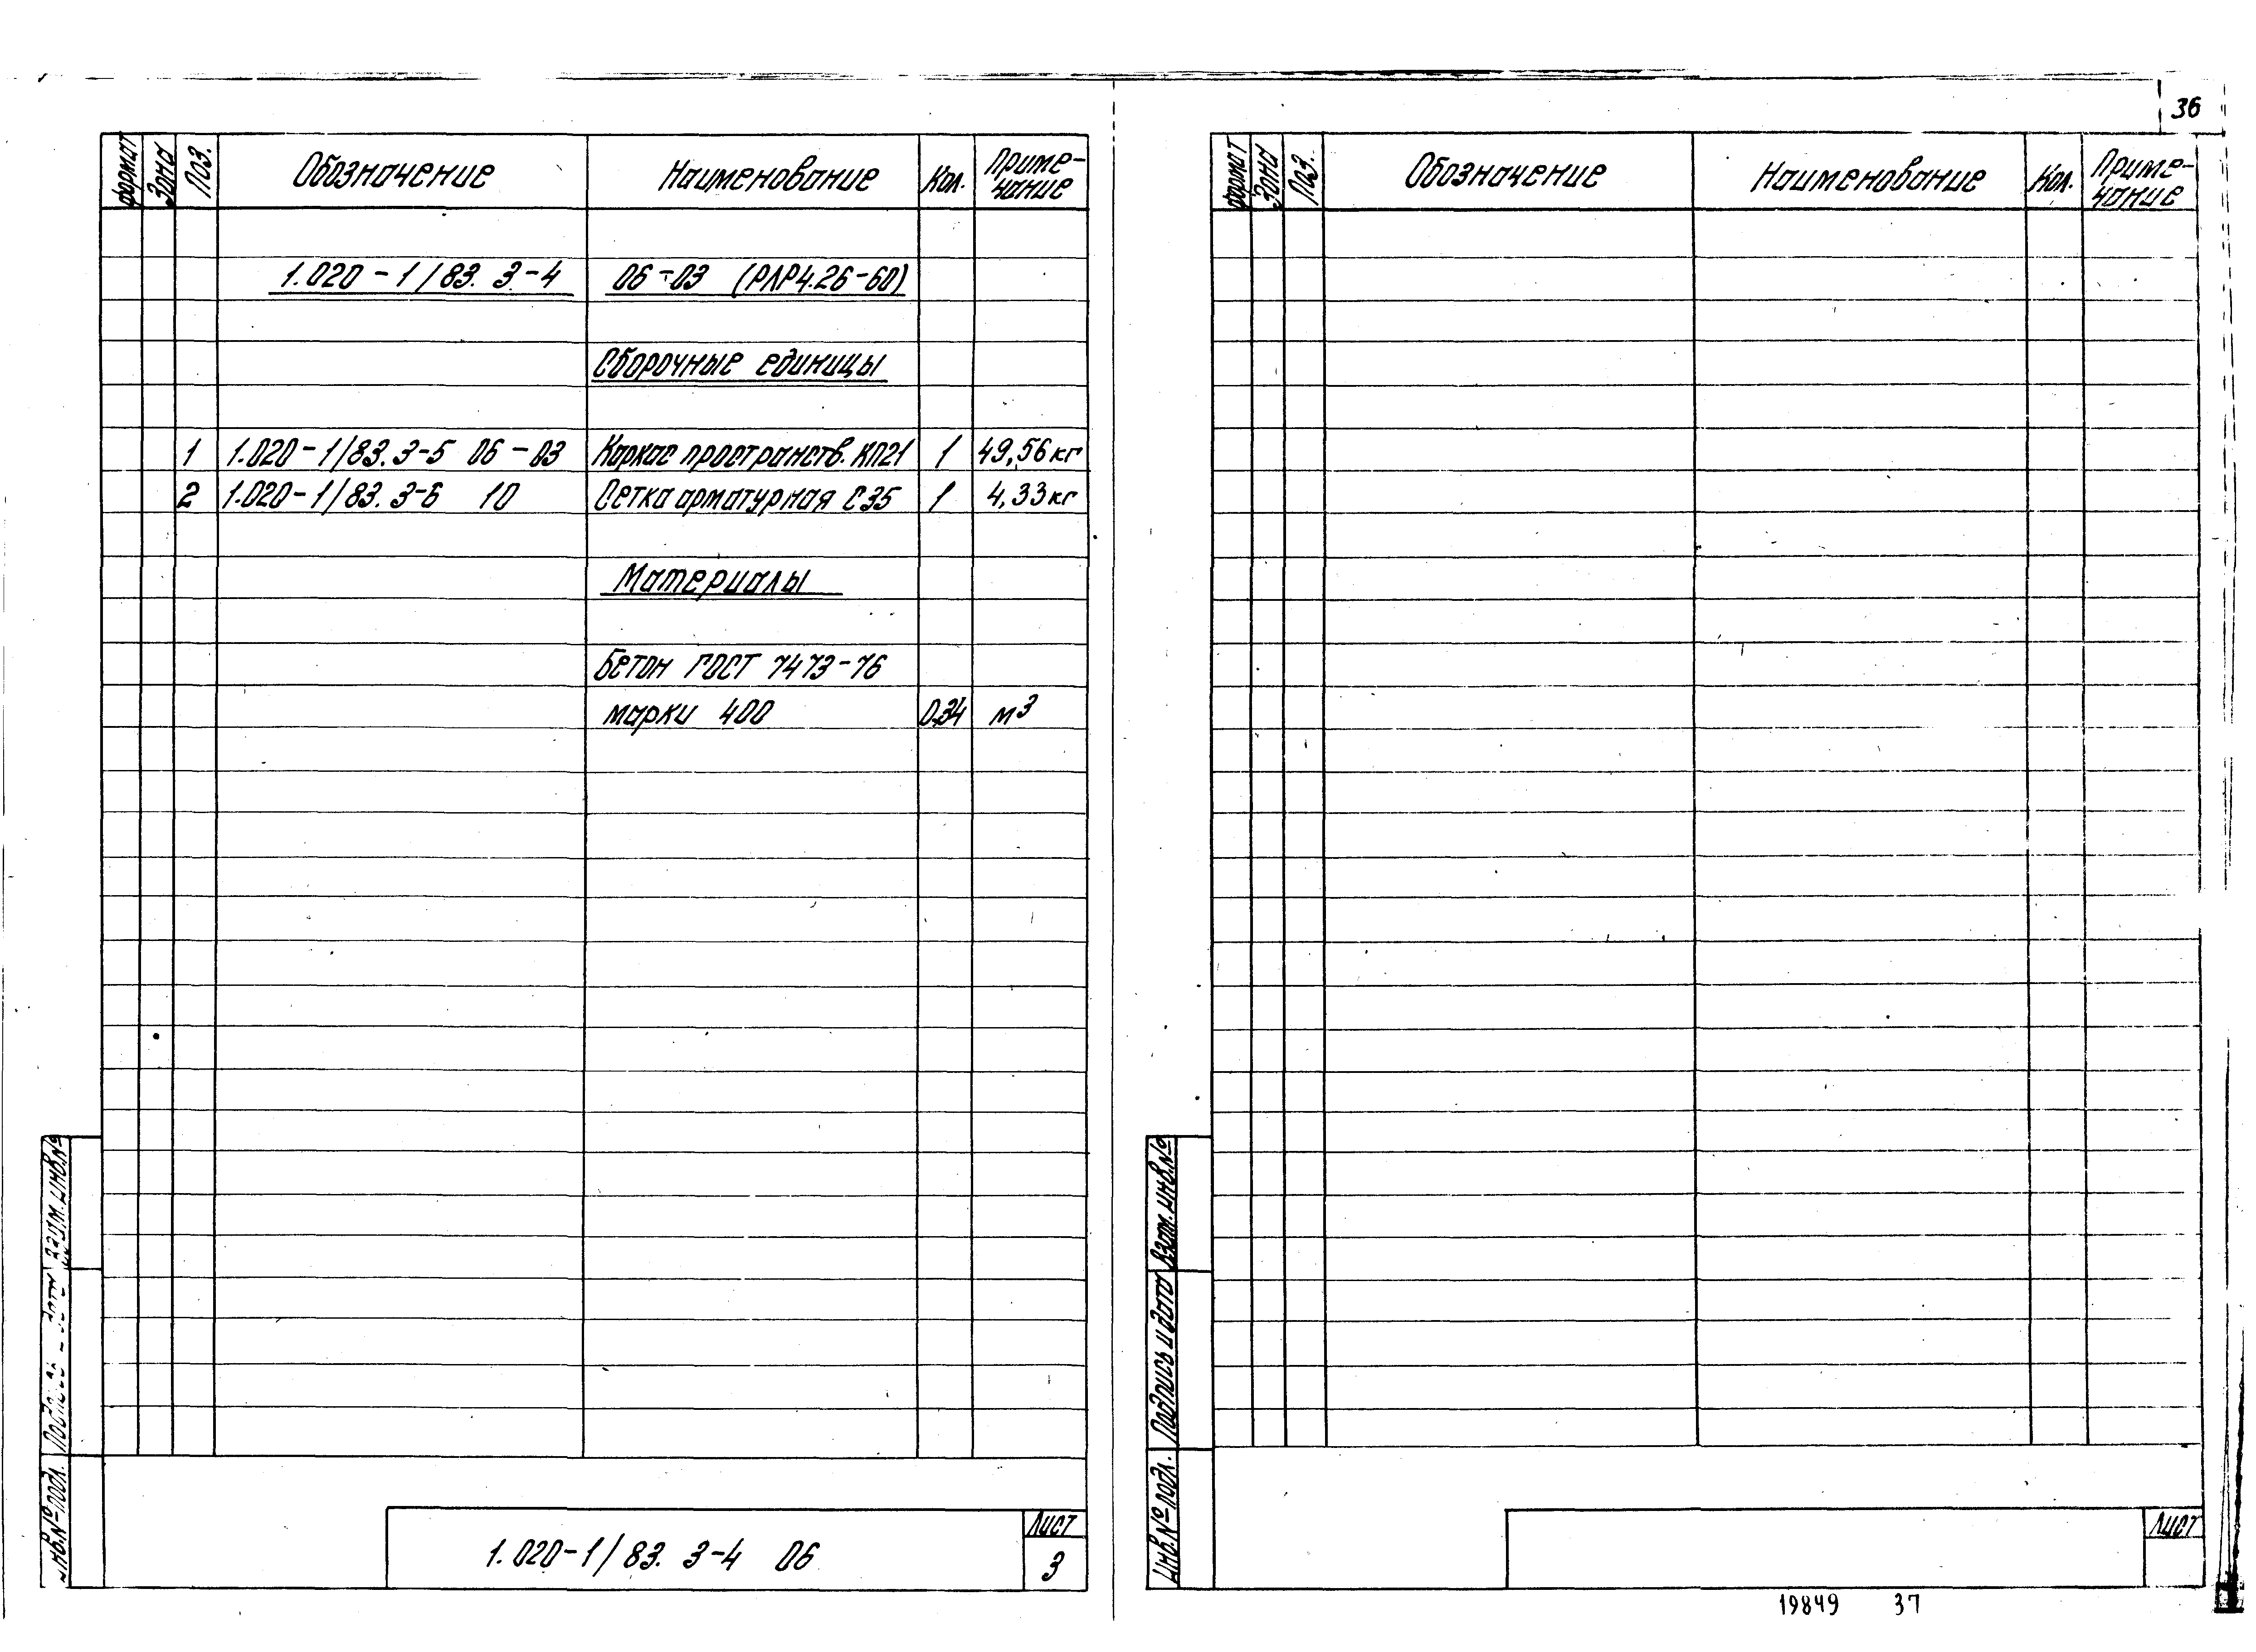 36
Формат Зона Поз. Обозначение Наименование Кол. Приме-
чание
1.020-1/83. 3-4 06-03 (РЛР4.26-60)
Сборочные единицы
1 1.020-1/83. 3-5 06-03 Каркас пространств. КП21 1 49,56 кг
2 1.020-1/83. 3-6 10 Сетка арматурная С35 1 4,33 кг
Материалы
Бетон ГОСТ 7473-76
марки 400 0,34 м³
Взам. инв. №
Инв. № подл.
1.020-1/83. 3-4 06
Лист
3
Формат Зона Поз. Обозначение Наименование Кол. Приме-
чание
Взам. инв. №
Подпись и дата
Инв. № подл.
Лист
19849 37